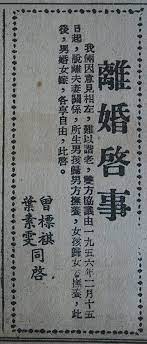 離婚啓事
我倆因意見相左，難以偕老，雙方協議由一九五六年一月十五
日起，脫離夫妻關係，所生男孩歸男方撫養，女孩歸女方撫養，此
後，男婚女嫁，各享自由，此啓。
曾標祺
葉素雯
同啓